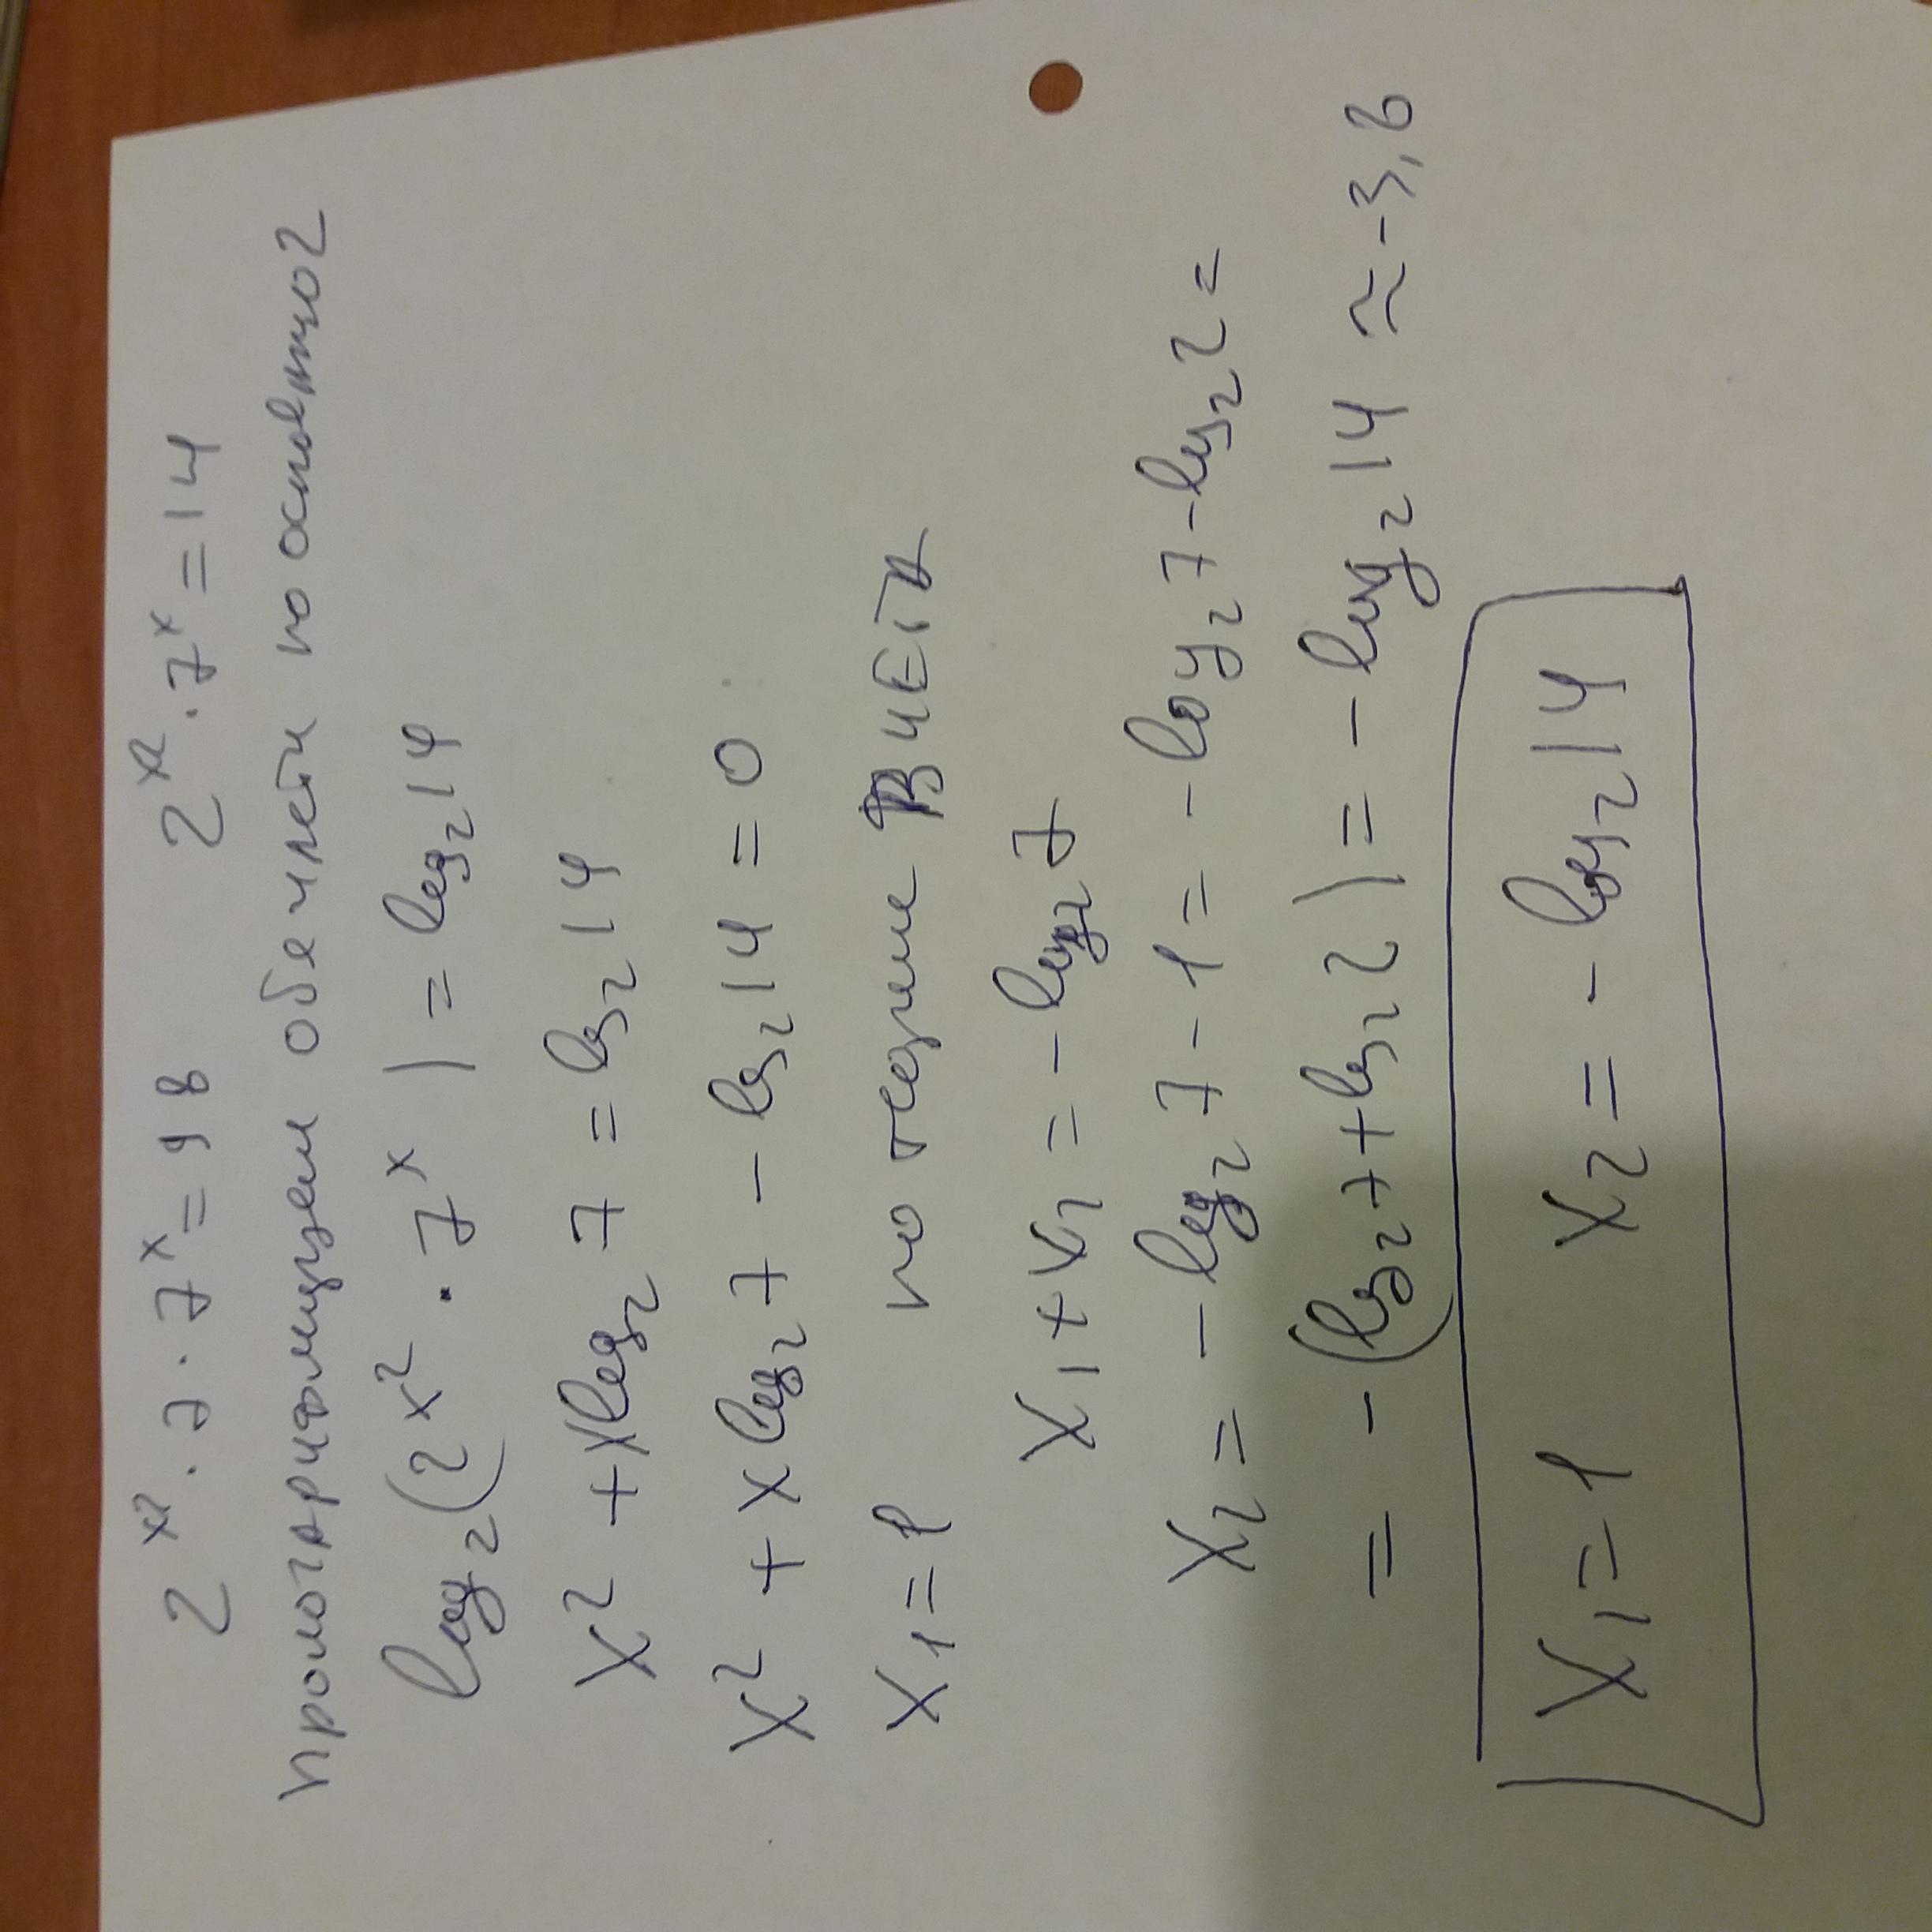 2^x² · 7 · 7^x = 98 2^x² · 7^x = 14
прологарифмируем обе части по основанию 2
log₂(2^x² · 7^x) = log₂14
x² + xlog₂7 = log₂14
x² + xlog₂7 - log₂14 = 0
x₁ = 1 по теореме Виета
x₁ + x₂ = -log₂7
x₂ = -log₂7 - 1 = -log₂7 - log₂2 =
= -(log₂7 + log₂2) = -log₂14 ≈ -3,8
x₁ = 1 x₂ = -log₂14